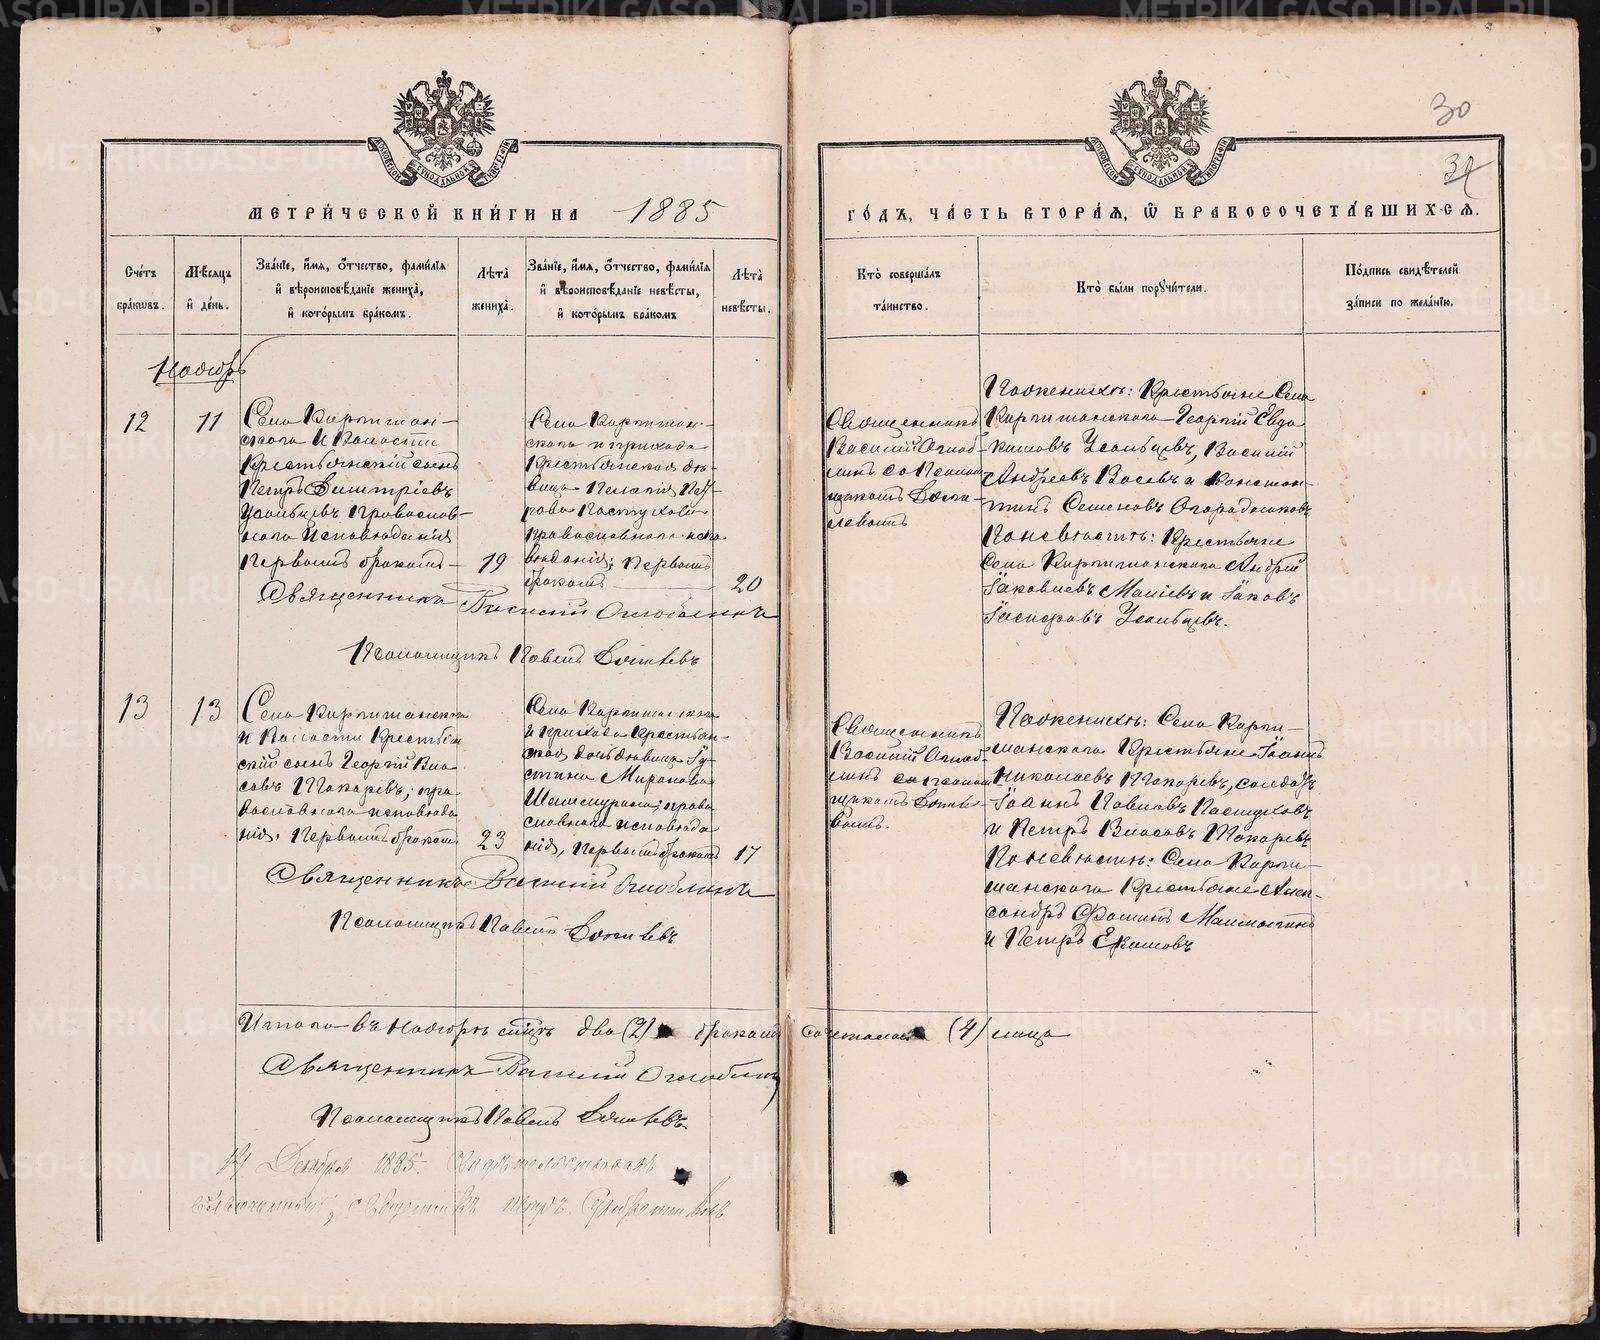 30
31
МЕТРИ́ЧЕСКОЙ КНИ́ГИ НА 1885
ГО́ДЪ, ЧА́СТЬ ВТОРА́Я, Ѡ БРАКОСОЧЕТА́ВШИХСЯ.
Сче́тъ бра́ковъ.
Мѣ́сяцъ и҆ де́нь.
Зва́нїе, и҆́мя, ѻ҆́тчество, фами́лїя и҆ вѣроисповѣ́данїе жениха̀, и҆ кото́рымъ бра́комъ.
Лѣ́та жениха̀.
Зва́нїе, и҆́мя, ѻ҆́тчество, фами́лїя и҆ вѣроисповѣ́данїе невѣ́сты, и҆ кото́рымъ бра́комъ
Лѣ́та невѣ́сты.
Кто̀ соверша́лъ та́инство.
Кто̀ бы́ли порꙋчи́тели.
По́дпись свидѣ́телей за́писи по жела́нїю.
Ноябрь
12
11
Села Киргишан-
скаго и Волости
Крестьянскій сынъ
Петръ Димитріевъ
Усольцевъ Православ-
наго исповѣданія
Первымъ бракомъ
19
Села Киргишан-
скаго и прихода
Крестьянская дѣ-
вица Пелагія Пет-
рова Пастухова
православнаго испо
вѣданія; первымъ
бракомъ
20
Священникъ
Василий Оглоблинъ
со Псалом
щикомъ
Поженихѣ: Крестьяне Села
Киргишанскаго Георгій Евдо
кимовъ Усольцевъ, Василий
Андреевъ и Констан-
тинъ Семеновъ Огородниковъ
Поневѣстѣ: Крестьяне
Села Киргишанскаго Андрей
Яковлевъ и Яковъ
Усольцевъ.
Священникъ Василий Оглоблинъ
Псаломщикъ Павелъ
13
13
Села Киргишанскаго
и Волости Крестьян
скій сынъ Георгій Вла
совъ Токаревъ; пра
вославнаго исповѣда
нія, первымъ бракомъ
23
Села Киргишанскаго
и прихода Крестьян-
ская дочь дѣвица Іу-
стина Миронова
право
славнаго исповѣда
нія, первымъ бракомъ
17
Священникъ
Василий Оглоб
линъ со псалом
щикомъ
Поженихѣ: Села Кирги-
шанскаго Крестьяне Іоаннъ
Николаевъ Токаревъ, солдатъ
Іоаннъ Павловъ Пастуховъ
и Петръ Власовъ Токаревъ
Поневѣстѣ: Села Кирги-
шанскаго Крестьяне Алек-
сандръ Фоминъ
и Петръ
Священникъ Василий Оглоблинъ
Псаломщикъ Павелъ
Итого въ Ноябрѣ сихъ два (2) бракомъ сочеталось (4) лица
Священникъ Василий Оглоблинъ
Псаломщикъ Павелъ
14 Декабря 1885 Свидѣтельствовалъ
Благочинный, Священникъ Петръ
METRIKI.GASO-URAL.RU